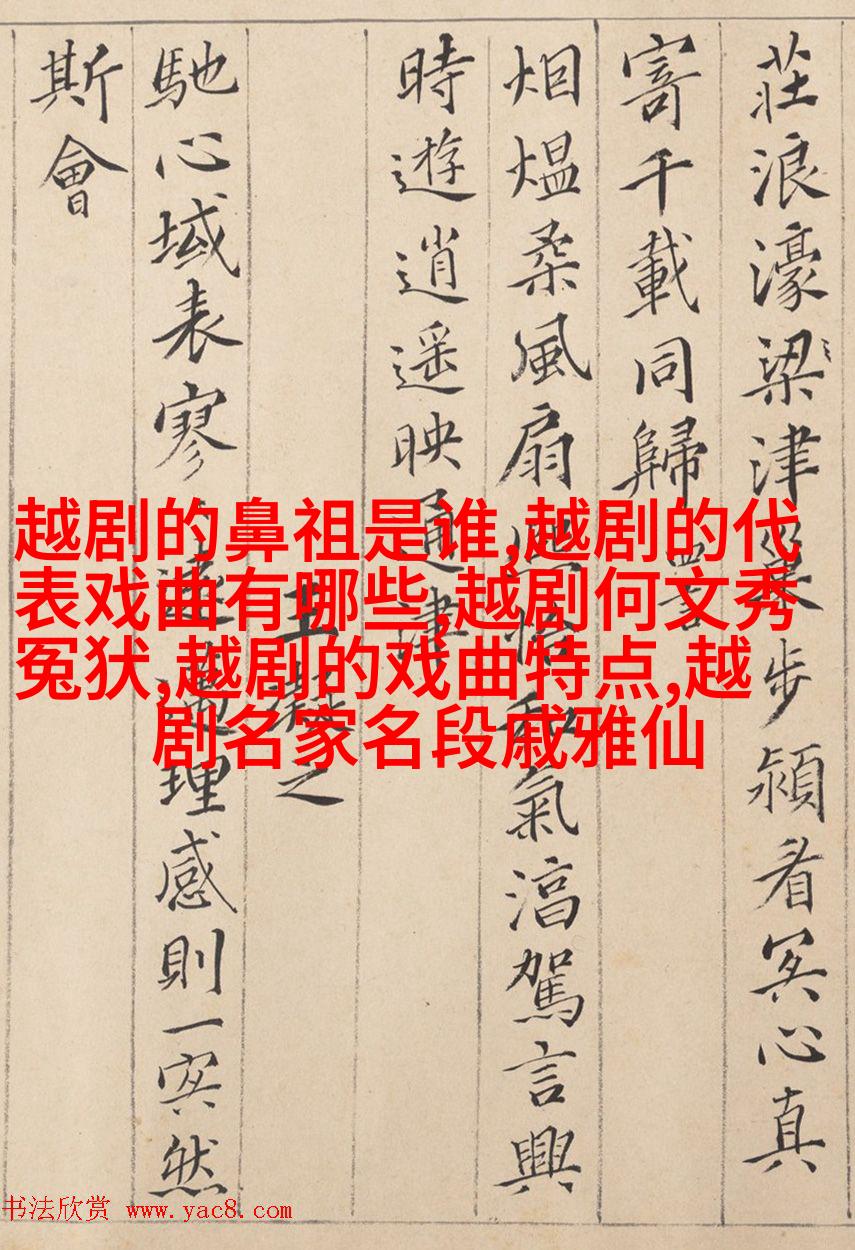 莊浪濠梁津巢步潁眉冥心真
寄千載同歸
烟煴柔風扇熙怡和氣淳駕言興
時遊逍遥映通津
王凝之
馳心域表寥遠邁理感則一冥然
斯會
越剧的鼻祖是谁,越剧的代
表戏曲有哪些,越剧何文秀
冤状,越剧的戏曲特点,越
剧名家名段戚雅仙
书法欣赏 www.yac8.com